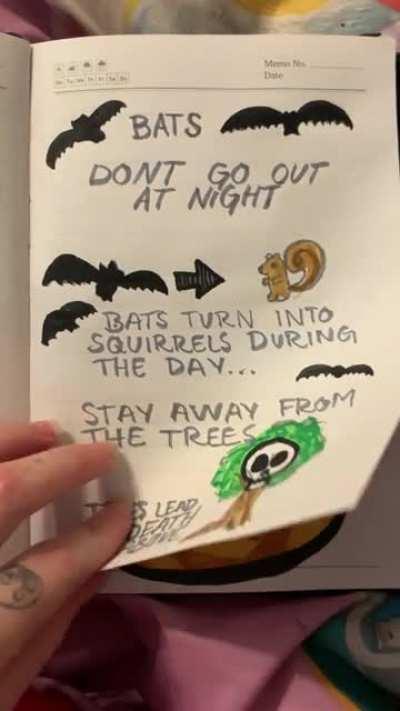 Memo No.
Date
BATS
DONT GO OUT
AT NIGHT
BATS TURN INTO
SQUIRRELS DURING
THE DAY...
STAY AWAY FROM
THE TREES
LEAD
DEATH